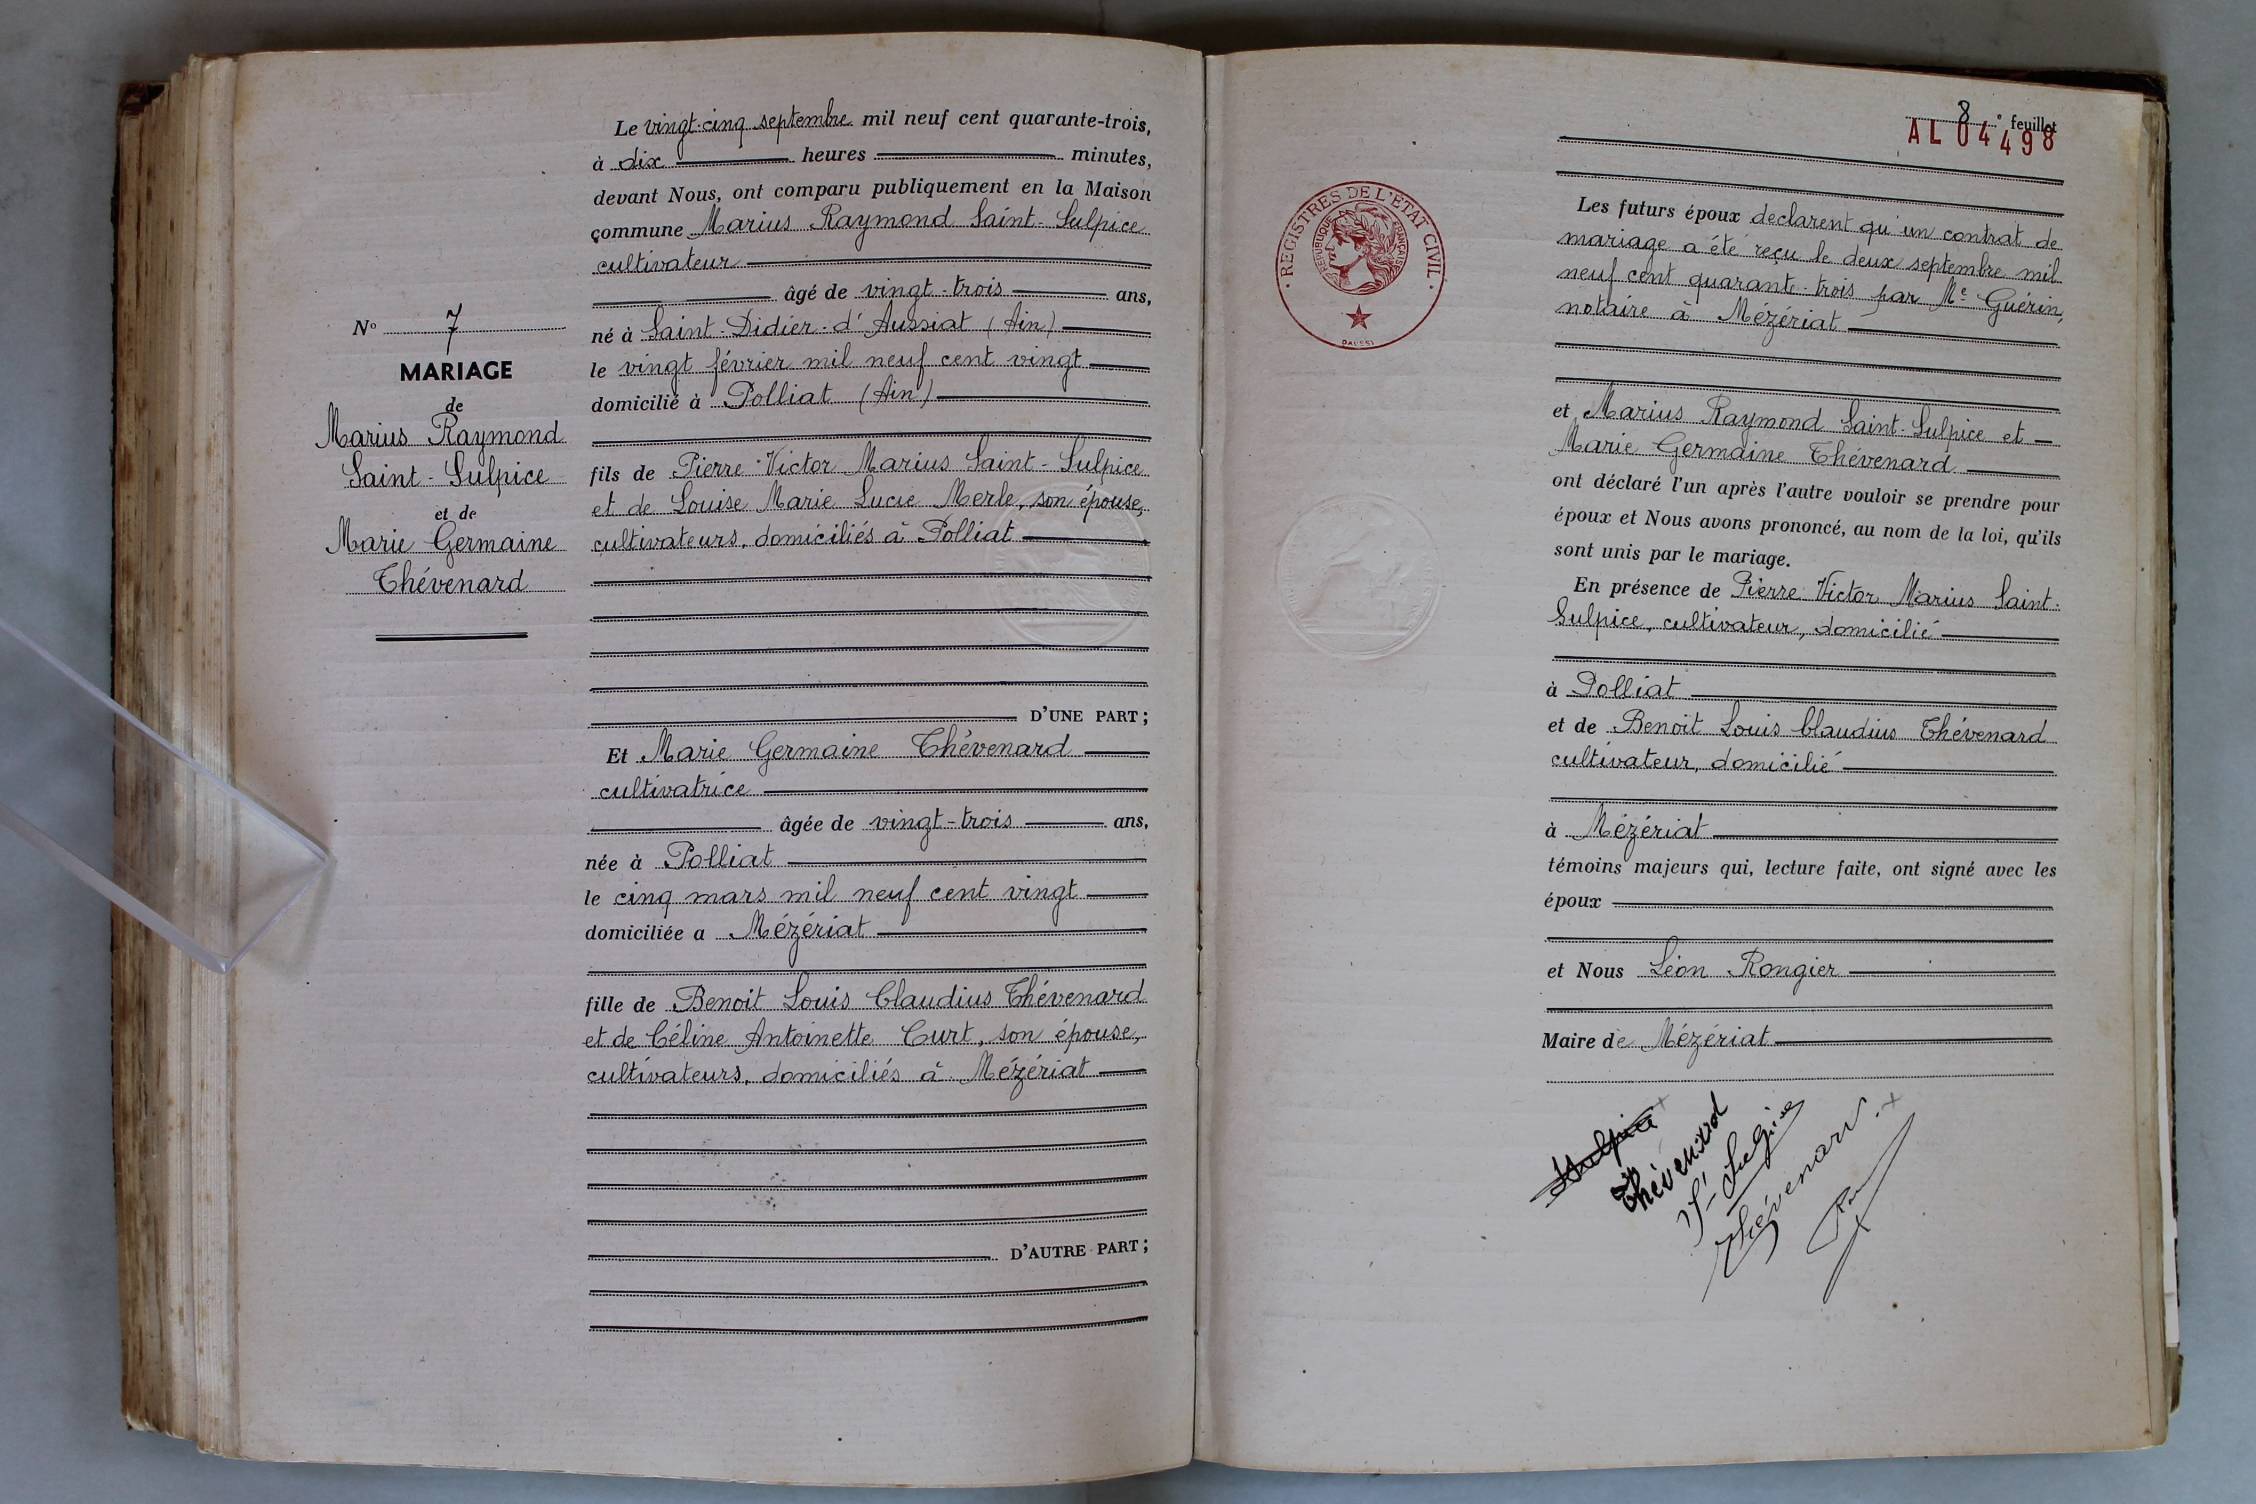 Le vingt-cinq septembre mil neuf cent quarante-trois,
à dix heures minutes,
devant Nous, ont comparu publiquement en la Maison
commune Marius Raymond Saint-Sulpice
cultivateur
âgé de vingt-trois ans,
né à Saint-Didier-d'Aussiat (Ain)
le vingt février mil neuf cent vingt
domicilié à Polliat (Ain)
fils de Pierre Victor Marius Saint-Sulpice
et de Louise Marie Lucie Merle, son épouse,
cultivateurs, domiciliés à Polliat
D'UNE PART ;
Et Marie Germaine Thévenard
cultivatrice
âgée de vingt-trois ans,
née à Polliat
le cinq mars mil neuf cent vingt
domiciliée a Mézériat
fille de Benoit Louis Claudius Thévenard
et de Céline Antoinette Curt, son épouse,
cultivateurs, domiciliés à Mézériat
D'AUTRE PART ;
N° 7
MARIAGE
de
Marius Raymond
Saint-Sulpice
et de
Marie Germaine
Thévenard
8e feuillet
AL 04498
REGISTRES DE L'ÉTAT CIVIL
RÉPUBLIQUE FRANÇAISE
Les futurs époux declarent qu'un contrat de
mariage a été reçu le deux septembre mil
neuf cent quarante-trois par Me Guérin,
notaire à Mézériat
et Marius Raymond Saint-Sulpice et
Marie Germaine Thévenard
ont déclaré l'un après l'autre vouloir se prendre pour
époux et Nous avons prononcé, au nom de la loi, qu'ils
sont unis par le mariage.
En présence de Pierre Victor Marius Saint-
Sulpice, cultivateur, domicilié
à Polliat
et de Benoit Louis Claudius Thévenard
cultivateur, domicilié
à Mézériat
témoins majeurs qui, lecture faite, ont signé avec les
époux
et Nous Léon Rongier
Maire de Mézériat
Thévenard
Thévenard